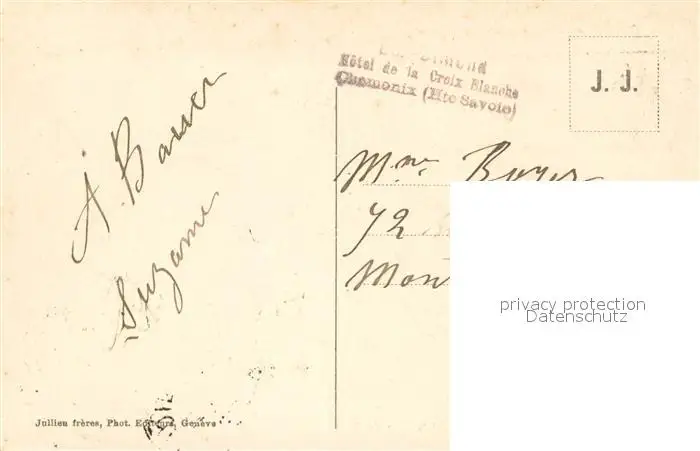 Simond
Hôtel de la Croix Blanche
Chamonix (Hte Savoie)
J. J.
A. Bauer
Suzanne
Mme
72
Mon
privacy protection
Datenschutz
Jullien frères, Phot. Editeurs, Genève